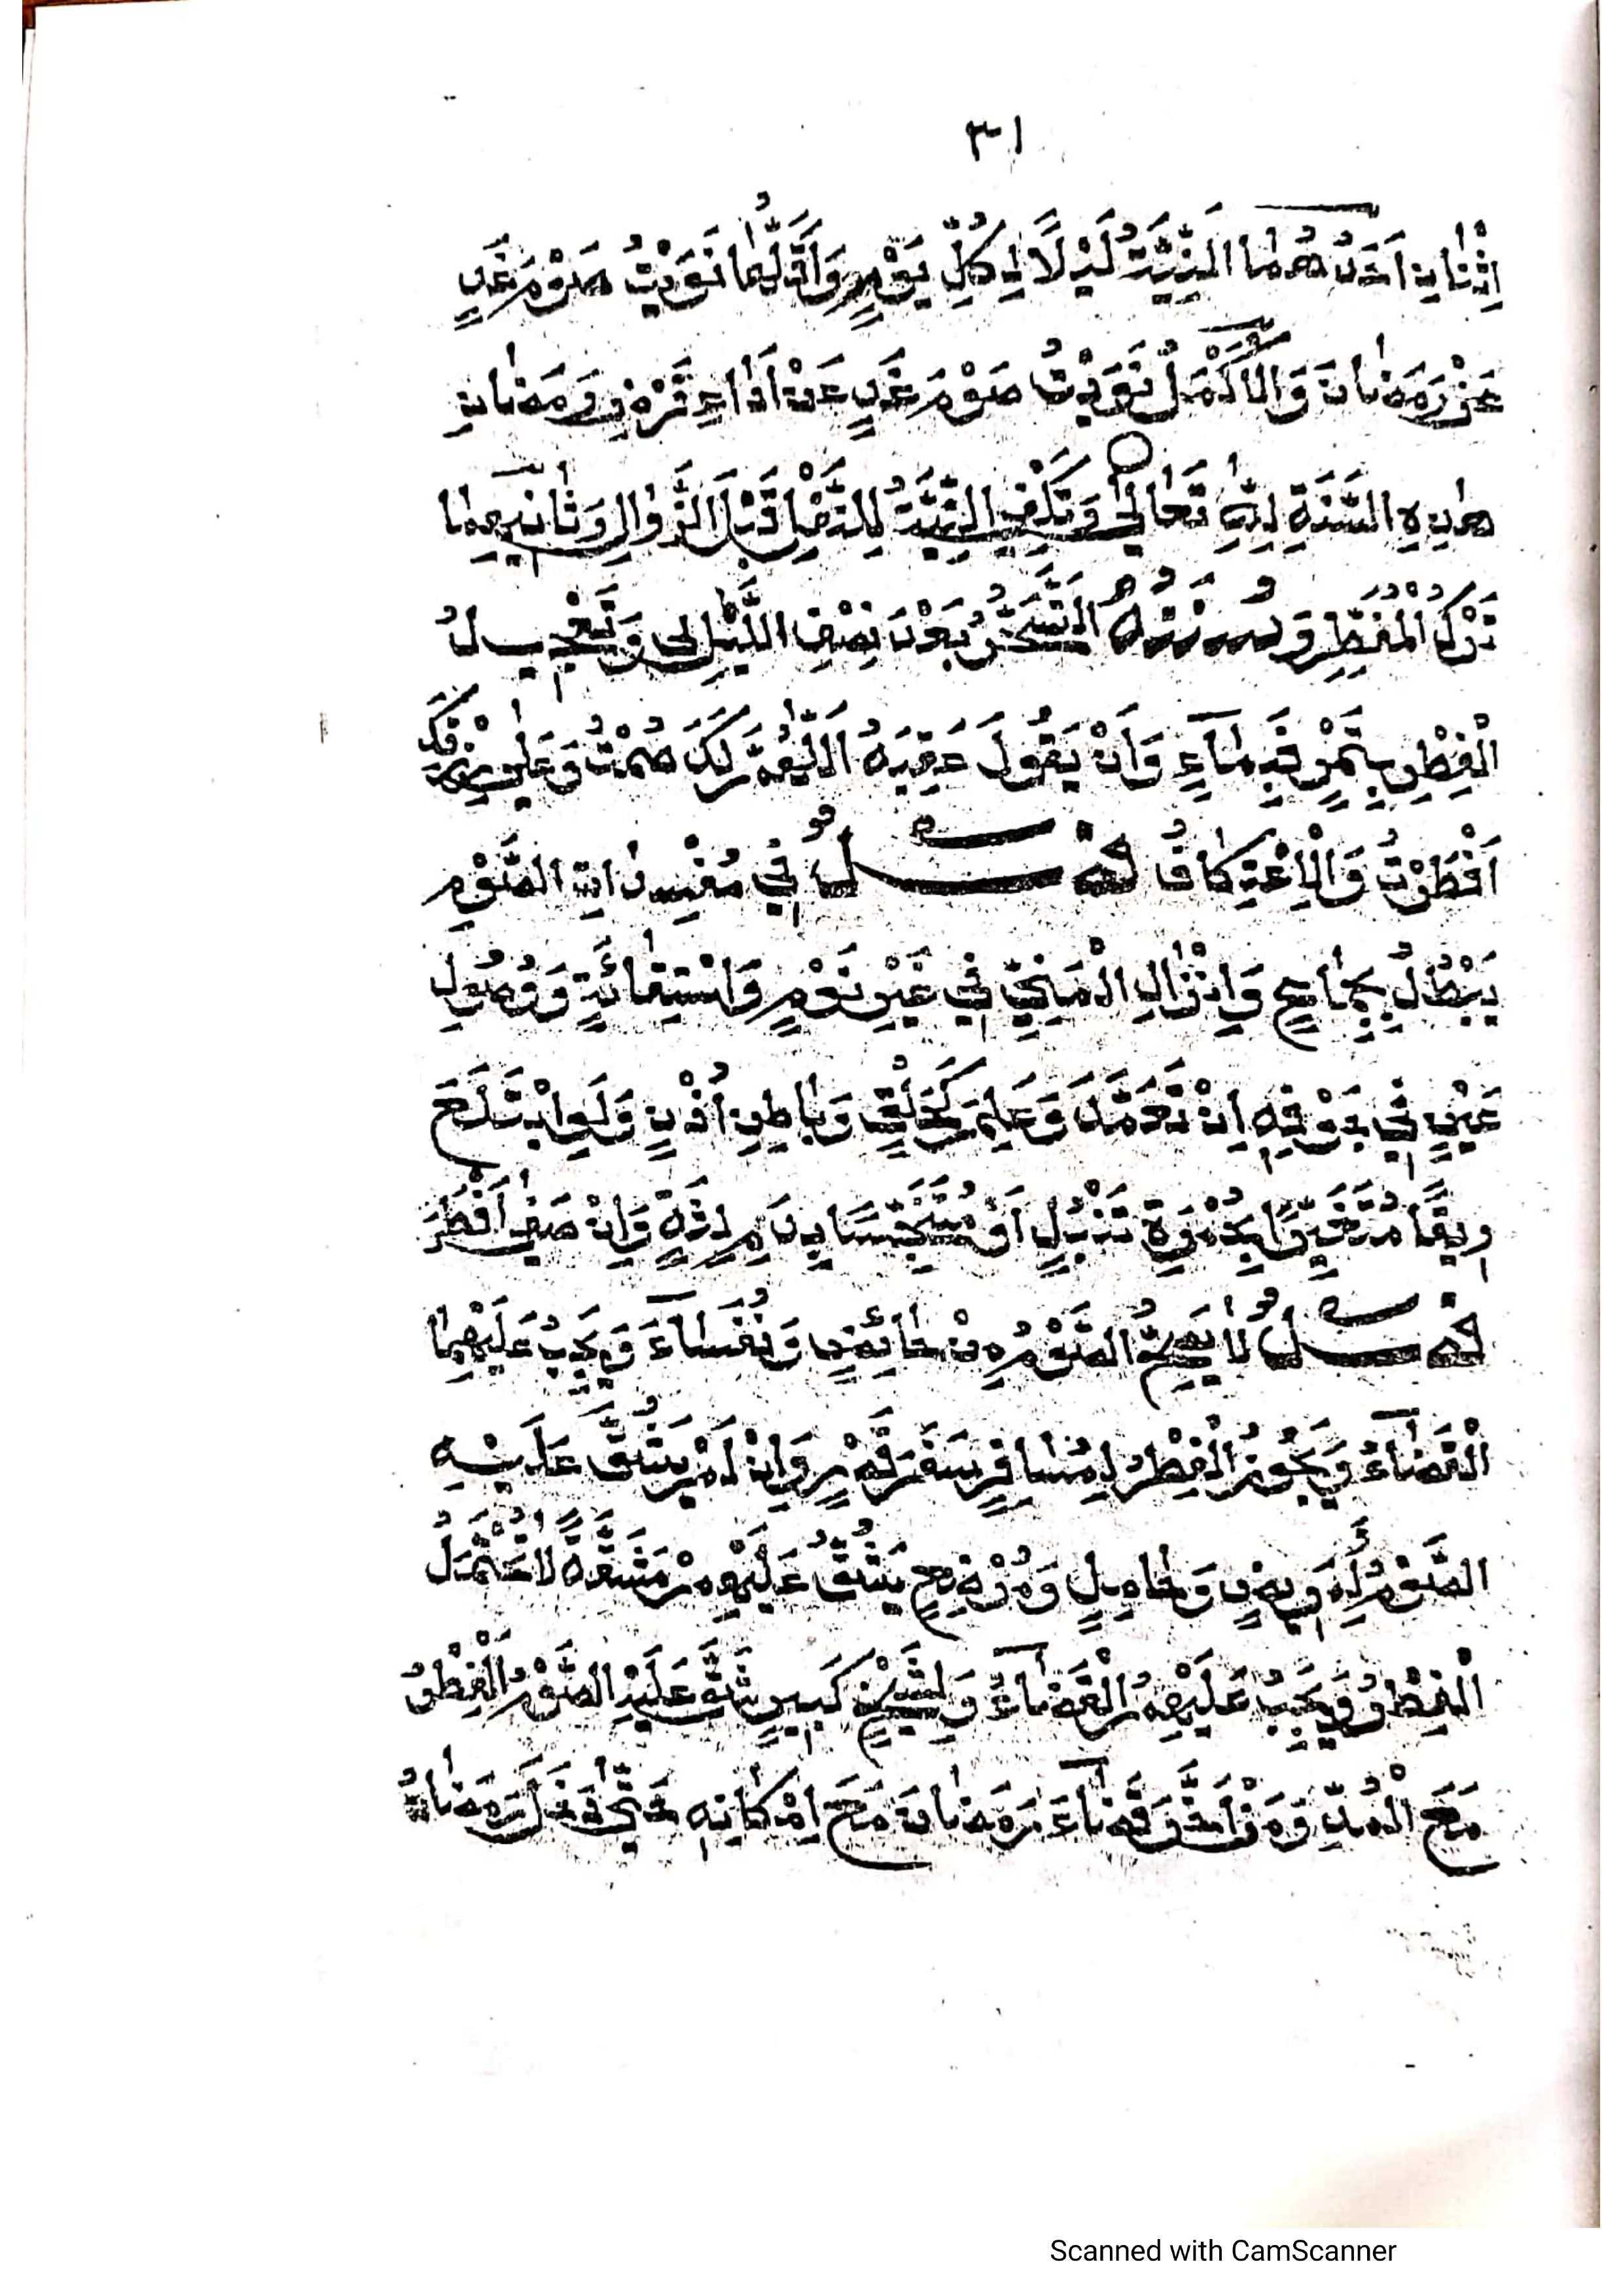 ٣١
اِثْنَانِ اَحَدُهُمَا النِّيَّةُ لَيْلًا لِكُلِّ يَوْمٍ وَاَقَلُّهَا نَوَيْتُ صَوْمَ غَدٍ
عَنْ رَمَضَانَ وَالْاَكْمَلُ نَوَيْتُ صَوْمَ غَدٍ عَنْ اَدَاءِ فَرْضِ رَمَضَانِ
هٰذِهِ السَّنَةِ لِلّٰهِ تَعَالٰى وَتَكْفِى النِّيَّةُ لِلنَّفْلِ قَبْلَ الزَّوَالِ وَثَانِيهِمَا
تَرْكُ الْمُفَطِّرِ وَسُنَنُهُ التَّسَحُّرُ بَعْدَ نِصْفِ اللَّيْلِ وَتَعْجِيلُ
الْفِطْرِ بِتَمْرٍ فَبِمَاءٍ وَاَنْ يَقُولَ عَقِبَهُ اَللّٰهُمَّ لَكَ صُمْتُ وَعَلٰى رِزْقِكَ
اَفْطَرْتُ وَالْاِعْتِكَافُ فَصْلٌ فِي مُفْسِدَاتِ الصَّوْمِ
يَبْطُلُ بِجِمَاعٍ وَاِنْزَالِ الْمَنِيِّ فِي غَيْرِ نَوْمٍ وَاسْتِقَائَةٍ وَوُصُولِ
عَيْنٍ فِي جَوْفِهِ اِنْ تَعَمَّدَ وَعَلِمَ كَحَلْقٍ وَبَاطِنِ اُذُنٍ وَلَوِ ابْتَلَعَ
رِيقًا مُتَغَيِّرًا بِحُمْرَةِ تَنْبُلٍ اَوْ مُتَنَجِّسًا بِدَمِ لِثَةٍ وَاِنْ صَفٰى اَفْطَرَ
فَصْلٌ لَا يَصِحُّ الصَّوْمُ مِنْ حَائِضٍ وَنُفَسَاءَ وَيَجِبُ عَلَيْهِمَا
الْقَضَاءُ وَيَجُوزُ الْفِطْرُ لِمُسَافِرٍ سَفَرَ قَصْرٍ وَاِنْ لَمْ يَشُقَّ عَلَيْهِ
الصَّوْمُ وَلِمَرِيضٍ وَحَامِلٍ وَمُرْضِعٍ يَشُقُّ عَلَيْهِمْ مَشَقَّةً لَا تُحْتَمَلُ
الْفِطْرُ وَيَجِبُ عَلَيْهِمُ الْقَضَاءُ وَلِشَيْخٍ كَبِيرٍ شَقَّ عَلَيْهِ الصَّوْمُ الْفِطْرُ
مَعَ الْمُدِّ وَمَنْ اَخَّرَ قَضَاءَ رَمَضَانَ مَعَ اِمْكَانِهِ حَتّٰى دَخَلَ رَمَضَانُ
Scanned with CamScanner